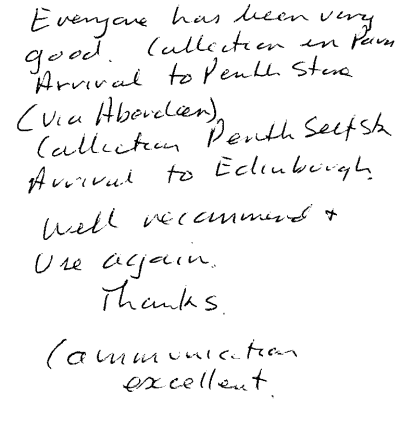 Everyone has been very
good. Collection in Paris
Arrival to Penth Store
(via Aberdeen)
Collection Penth Self St
Arrival to Edinburgh.
Well recommend +
Use again.
Thanks.
Communication
excellent.